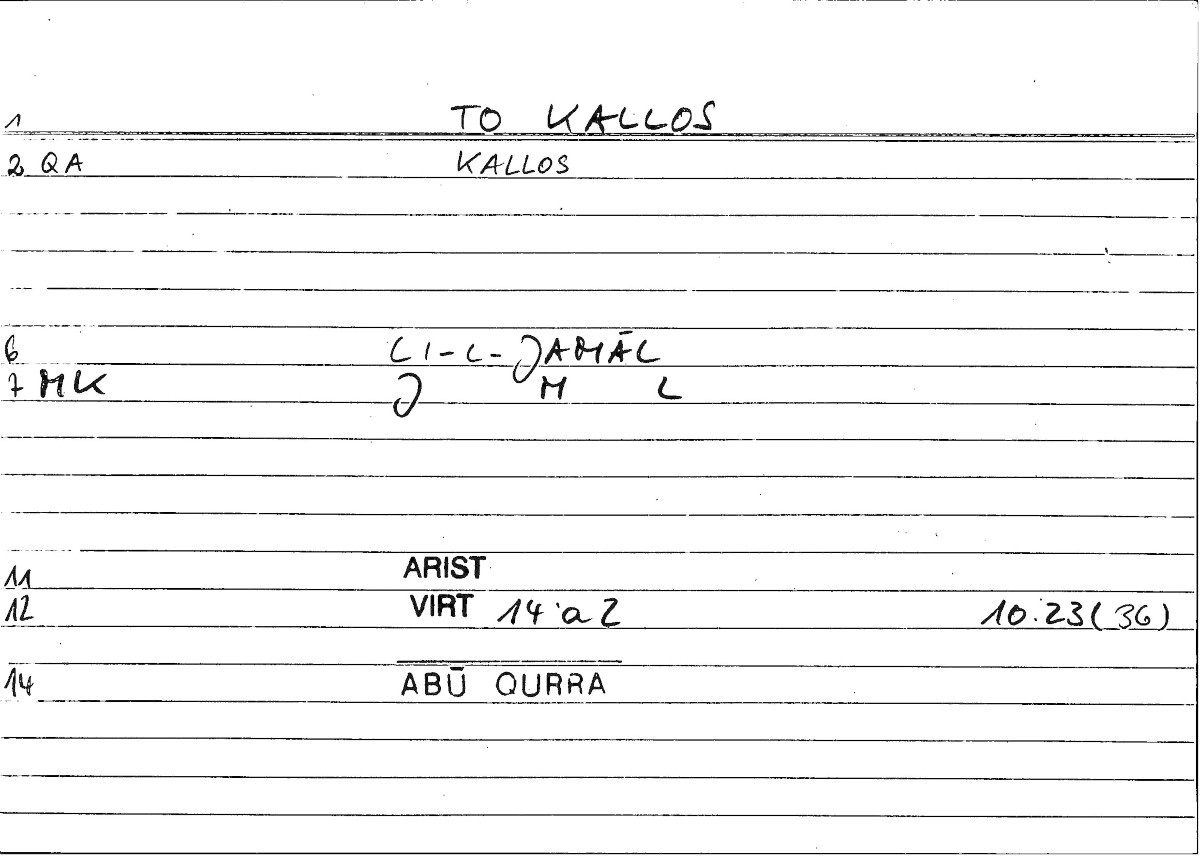 1 TO KALLOS
2 QA KALLOS
6 LI-L-JAMĀL
7 MK J M L
11 ARIST
12 VIRT 14 a 2 10.23(36)
14 ABŪ QURRA